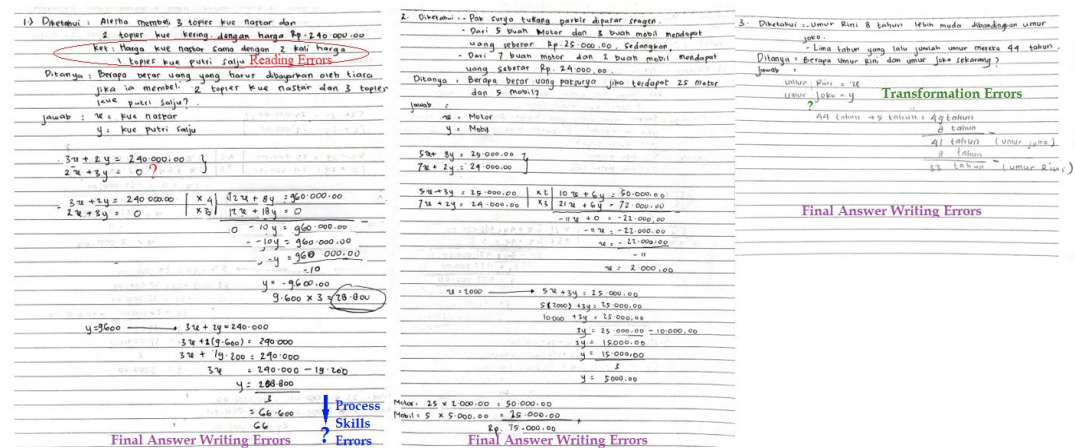 1.) Diketahui : Aleshа membeli 3 toples kue nastar dan
2 toples kue kering dengan harga Rp. 240.000.00
ket : Harga kue nastar sama dengan 2 kali harga
1 toples kue putri salju Reading Errors
Ditanya : Berapa besar uang yang harus dibayarkan oleh tiara
jika ia membeli 2 toples kue nastar dan 3 toples
kue putri salju?
Jawab : x = kue nastar
y = kue putri salju
3x + 2y = 240.000.00
2x + 3y = 0 ?
3x + 2y = 240.000.00 | x4 | 12x + 8y = 960.000.00
2x + 3y = 0 | x3 | 12x + 18y = 0
0 - 10y = 960.000.00
- -10y = 960.000.00
-y = 960.000.00
-10
y = -9.600.00
9.600 x 3 = 28.800
y=9600 → 3x + 2y = 240.000
3x + 2(9.600) = 240.000
3x + 19.200 = 240.000
3x = 240.000 - 19.200
3
= 66.600
66
Process
Skills
? Errors
Final Answer Writing Errors
2. Diketahui : - Pak Surya tukang parkir dipasar sragen.
- Dari 5 buah motor dan 3 buah mobil mendapat
uang sebesar Rp. 25.000.00, Sedangkan,
- Dari 7 buah motor dan 2 buah mobil mendapat
uang sebesar Rp. 24.000.00
Ditanya : Berapa besar uang paksurya jika terdapat 25 motor
dan 5 mobil?
Jawab :
x = Motor
y = Mobil
5x + 3y = 25.000.00
7x + 2y = 24.000.00
5x + 3y = 25.000.00 | x2 | 10x + 6y = 50.000.00
7x + 2y = 24.000.00 | x3 | 21x + 6y = 72.000.00
-11x + 0 = -22.000.00
-11x = -22.000.00
x = -22.000.00
-11
x = 2.000.00
x = 2000 → 5x + 3y = 25.000.00
5(2000) + 3y = 25.000.00
10.000 + 3y = 25.000.00
3y = 25.000.00 - 10.000.00
3y = 15.000.00
y = 15.000.00
3
y = 5000.00
Motor = 25 x 2.000.00 = 50.000.00
Mobil = 5 x 5.000.00 = 25.000.00
Rp. 75.000.00
Final Answer Writing Errors
3. Diketahui : - Umur Rini 8 tahun lebih muda dibandingkan umur
joko.
- Lima tahun yang lalu jumlah umur mereka 44 tahun.
Ditanya : Berapa Umur Rini dan umur Joko sekarang?
Jawab :
Umur Rini = x
Umur Joko = y
Transformation Errors
?
44 tahun + 5 tahun = 49 tahun
8 tahun
41 tahun (umur joko)
8 tahun
33 tahun (umur Rini)
Final Answer Writing Errors